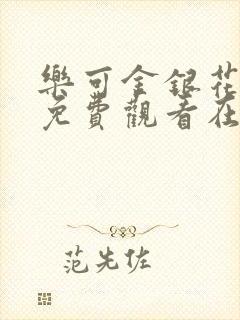 樂可金銀花
免費觀看在
范先佐